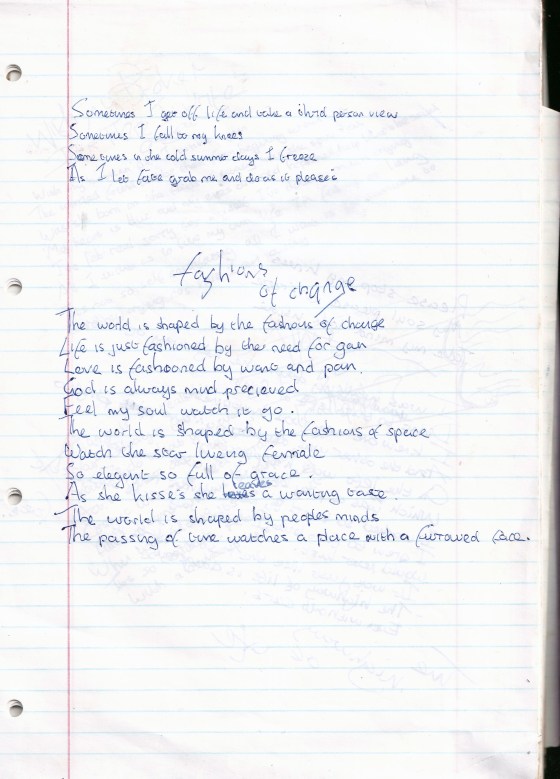 Sometimes I get off life and take a third person view
Sometimes I fall to my knees
Sometimes in the cold summer days I freeze
As I let fate grab me and do as it please's
fashions
of change
The world is shaped by the fashions of change
Life is just fashioned by the need for gain
Love is fashooned by want and pain.
God is always mud precieved
Feel my soul watch it go.
The world is shaped by the fashions of space
Watch the star living female
So elegant so full of grace.
As she kisse's she leaves a wanting taste.
The world is shaped by peoples minds
The passing of time watches a place with a furowed face.